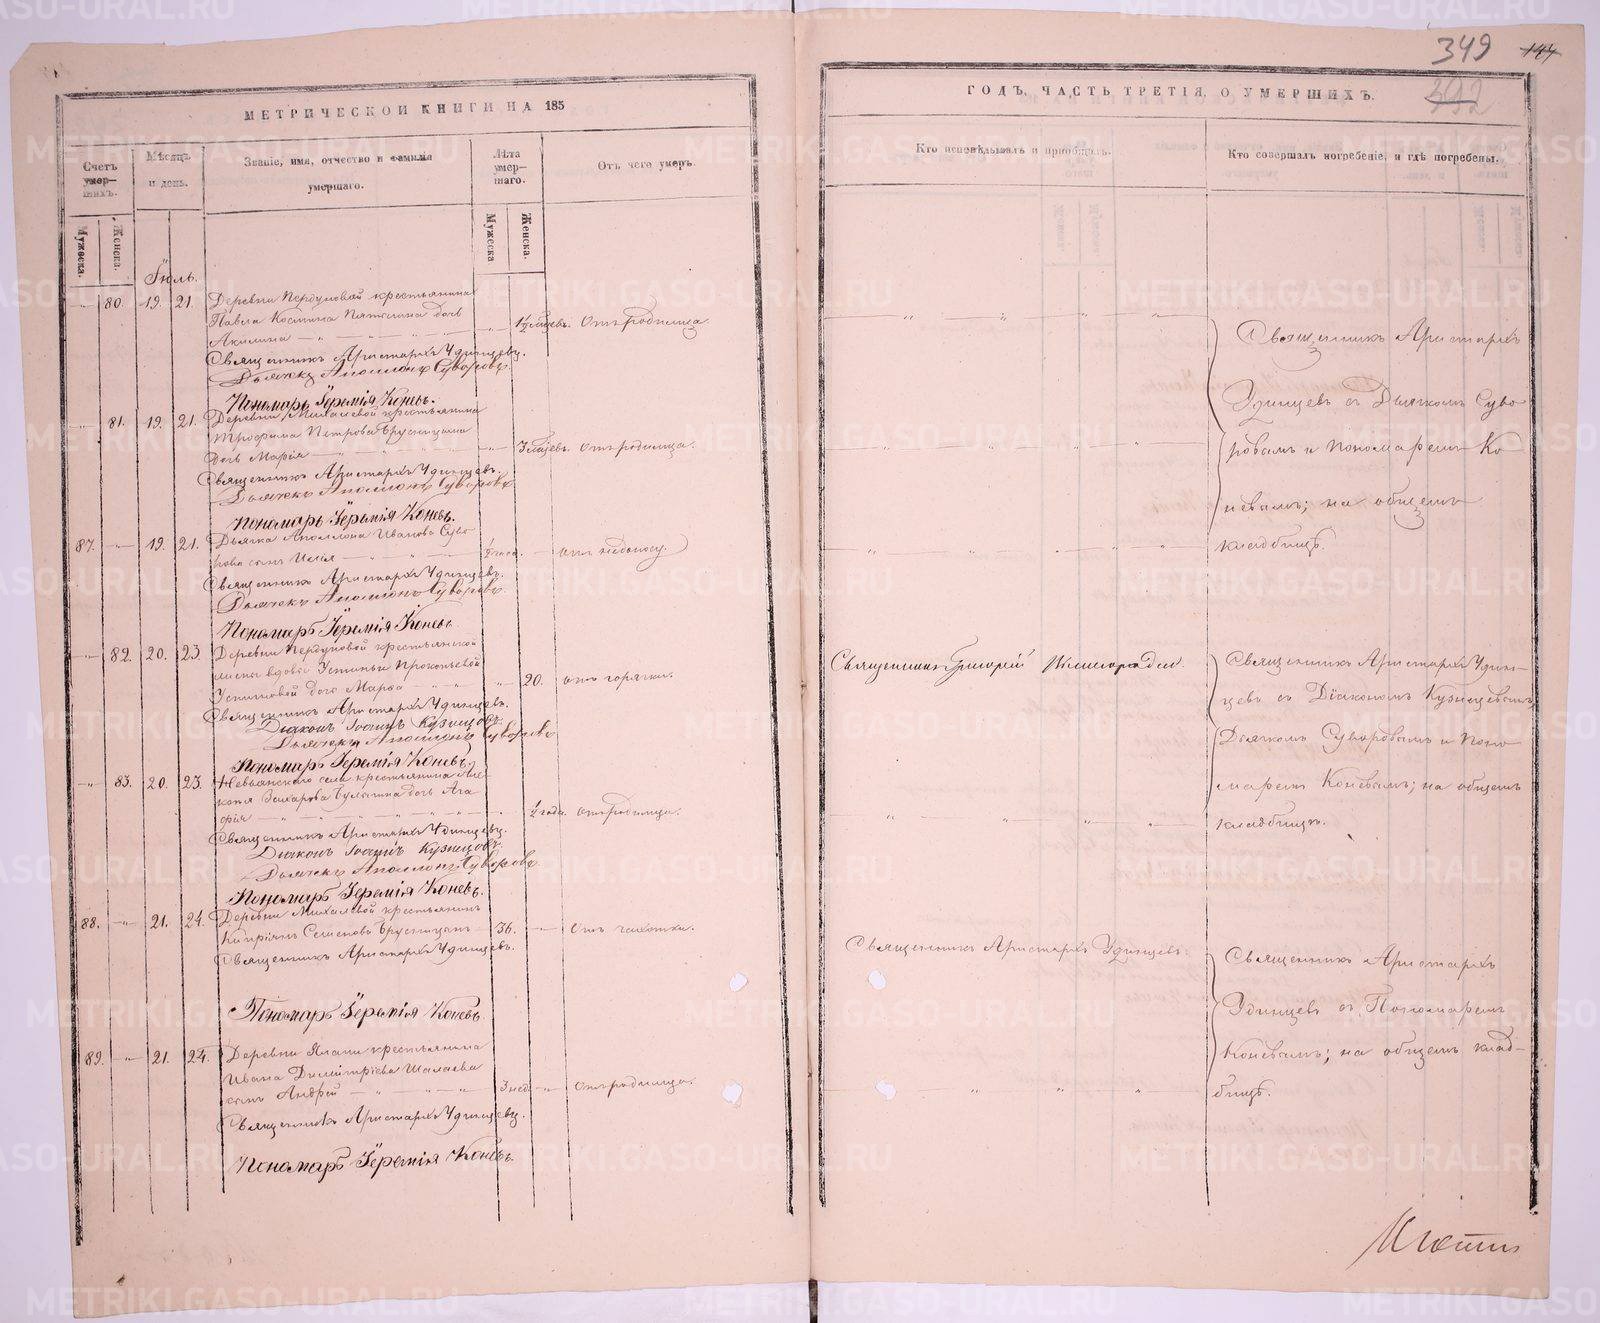 МЕТРИЧЕСКОЙ КНИГИ НА 185
Счетъ умер-шихъ.
Мѣсяцъ и день.
Званіе, имя, отчество и фамилія умершаго.
Лѣта умер-шаго.
Отъ чего умеръ.
Мужеска.
Женска.
Мужеска
Женска.
Іюль.
80. 19. 21. Деревни крестьянина
Павла дочь
Акилина 1½ Отъ родимца.
Священникъ Аристархъ Удинцевъ.
Дьячекъ Аполлонъ Суворовъ
Пономарь Іеремія Коневъ.
81. 19. 21. Деревни Михалевой крестьянина
Трофима Петрова Брусницына
дочь Марія 3 Отъ родимца.
Священникъ Аристархъ Удинцевъ.
Дьячекъ Аполлонъ Суворовъ
Пономарь Іеремія Коневъ.
87. 19. 21. Дьячка Аполлона Иванова Суво
рова сынъ Илія отъ недоносу.
Священникъ Аристархъ Удинцевъ.
Дьячекъ Аполлонъ Суворовъ.
Пономарь Іеремія Коневъ
82. 20. 23. Деревни крестьянской
вдовы Устиньи Прокопьевой
дочь Марѳа 20. отъ горячки.
Священникъ Аристархъ Удинцевъ.
Діаконъ Іоаннъ Кузнецовъ.
Дьячекъ Аполлонъ Суворовъ
Пономарь Іеремія Коневъ.
83. 20. 23. Невьянскаго села крестьянина Але-
ксѣя Захарова дочь Ага
фія ½ года. отъ родимца.
Священникъ Аристархъ Удинцевъ.
Діаконъ Іоаннъ Кузнецовъ.
Дьячекъ Аполлонъ Суворовъ
Пономарь Іеремія Коневъ.
88. 21. 24. Деревни Михалевой крестьянинъ
Кипріянъ Семеновъ Брусницынъ 36. Отъ чахотки.
Священникъ Аристархъ Удинцевъ.
Пономарь Іеремія Коневъ
89. 21. 24. Деревни Ялани крестьянина
Ивана Димитріева Шалаева
сынъ Андрей 3 нед. Отъ родимца.
Священникъ Аристархъ Удинцевъ.
Пономарь Іеремія Коневъ.
349
144
392
ГОДЪ, ЧАСТЬ ТРЕТІЯ, О УМЕРШИХЪ.
Кто исповѣдывалъ и пріобщалъ.
Кто совершалъ погребеніе, и гдѣ погребены.
Священникъ Аристархъ
Удинцевъ съ Дьячкомъ Суво
ровымъ и пономаремъ Ко
невымъ; на общемъ
кладбищѣ.
Священникъ Григорій
Священникъ Аристархъ Удин-
цевъ съ Діакономъ Кузнецовымъ
Дьячкомъ Суворовымъ и Поно
маремъ Коневымъ; на общемъ
кладбищѣ.
Священникъ Аристархъ Удинцевъ.
Священникъ Аристархъ
Удинцевъ съ Пономаремъ
Коневымъ; на общемъ клад-
бищѣ.
METRIKI.GASO-URAL.RU